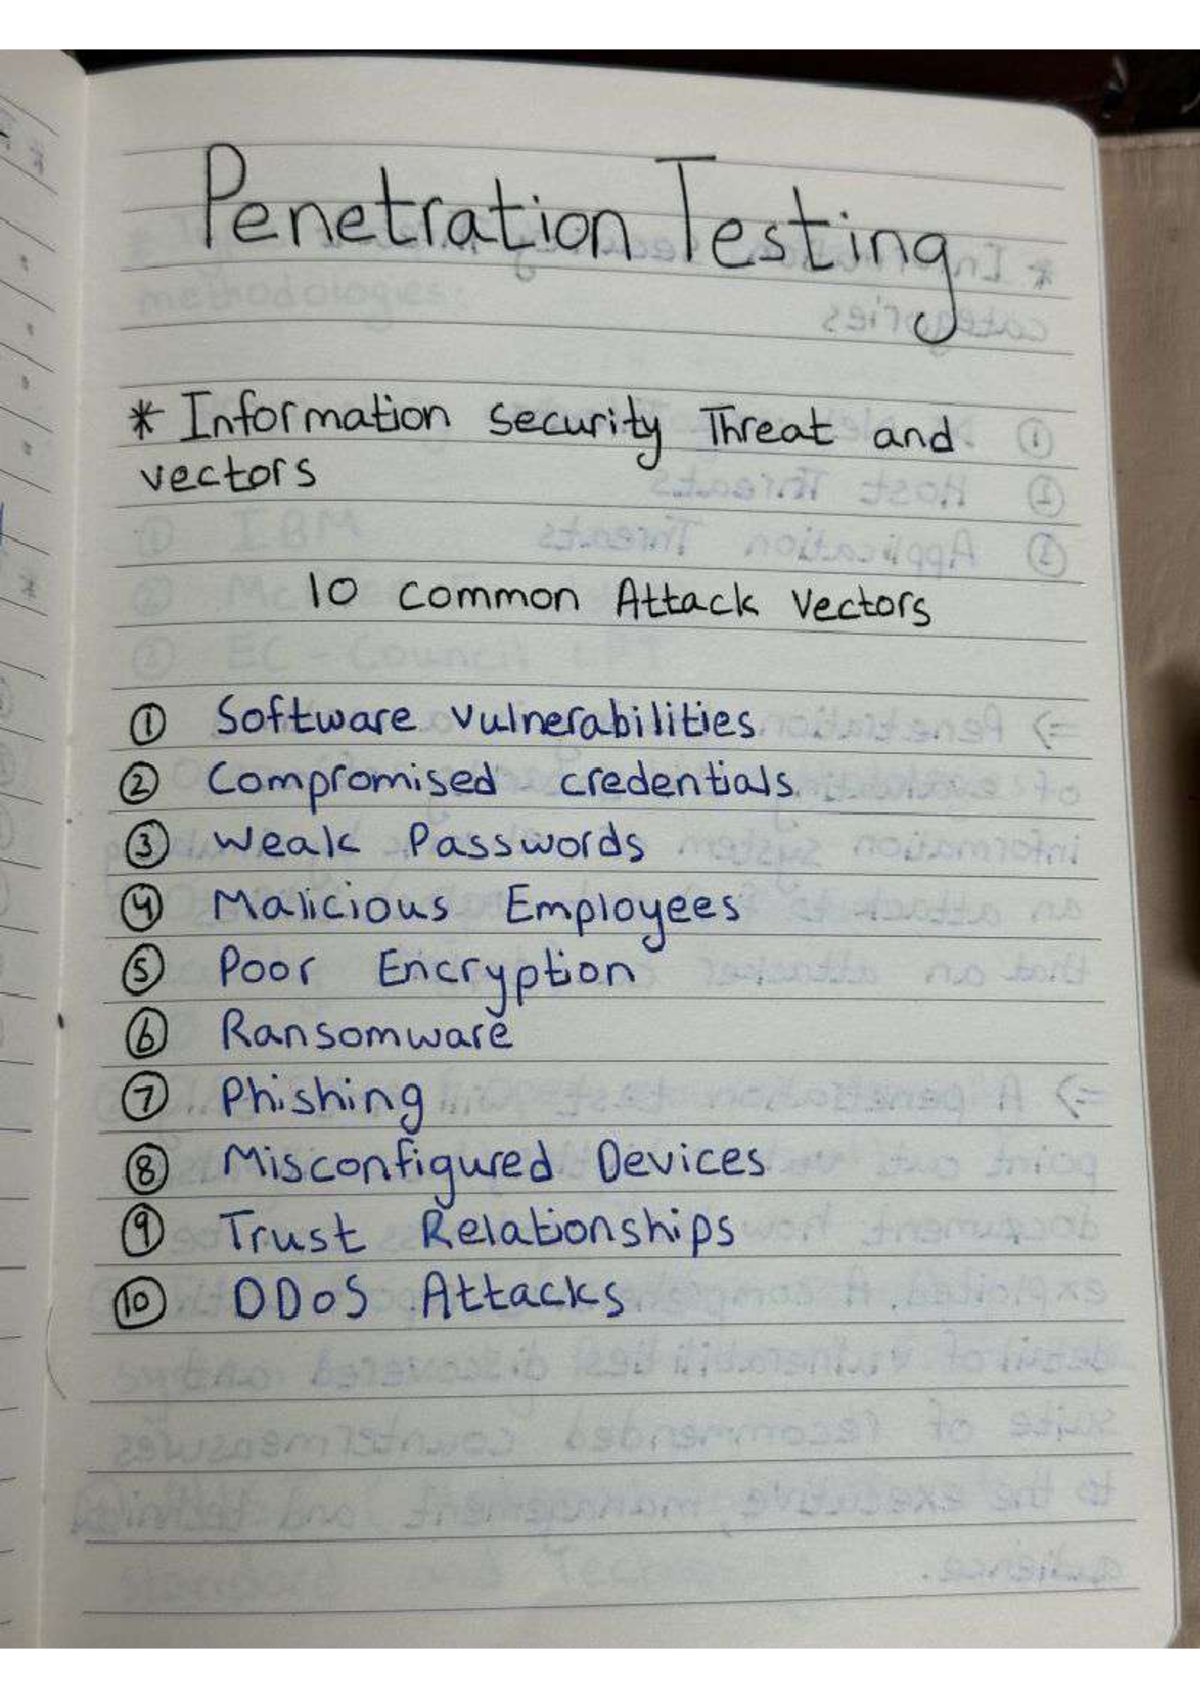 Penetration Testing
* Information security Threat and
vectors
10 common Attack Vectors
① Software vulnerabilities
② Compromised credentials
③ Weak Passwords
④ Malicious Employees
⑤ Poor Encryption
⑥ Ransomware
⑦ Phishing
⑧ Misconfigured Devices
⑨ Trust Relationships
⑩ DDoS Attacks